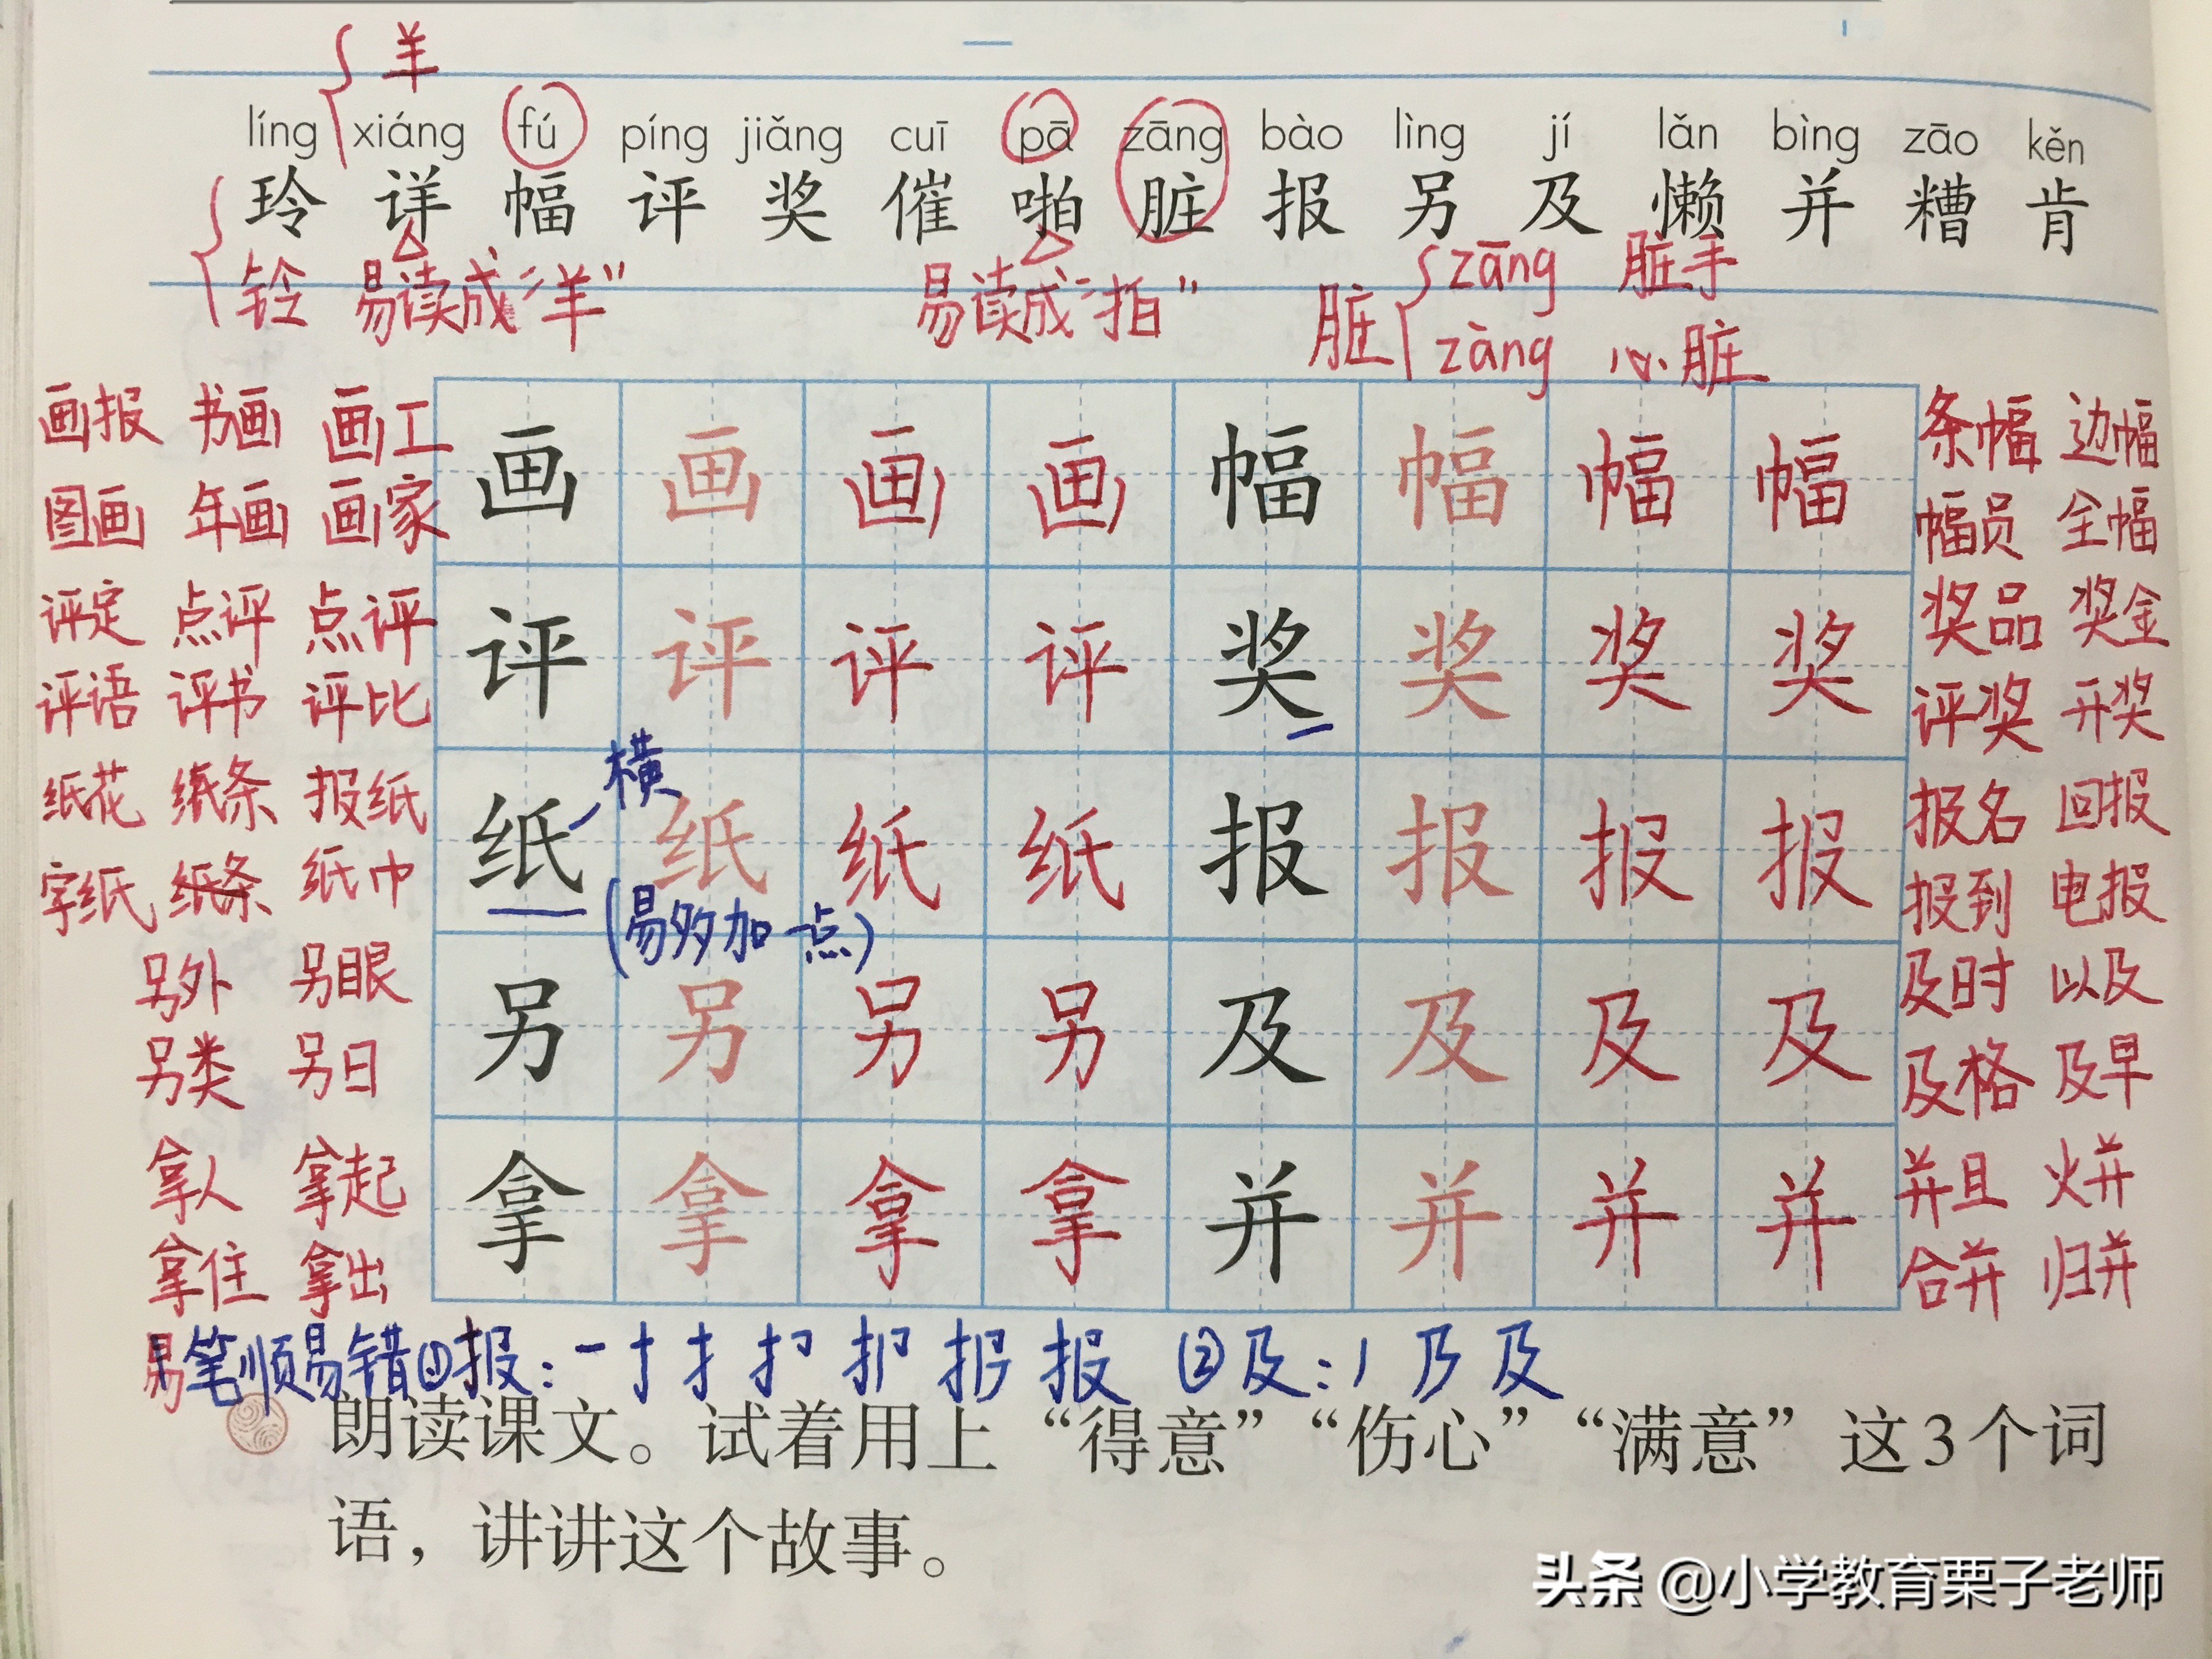 羊
líng xiáng fú píng jiǎng cuī pā zāng bào lìng jí lǎn bìng zāo kěn
玲 详 幅 评 奖 催 啪 脏 报 另 及 懒 并 糟 肯
铃 易读成“羊” 易读成“拍” 脏 zāng 脏手
zàng 心脏
画报 书画 画工 画 画 画 画 幅 幅 幅 幅 条幅 边幅
图画 年画 画家 幅员 全幅
评定 点评 点评 评 评 评 评 奖 奖 奖 奖 奖品 奖金
评语 评书 评比 评奖 开奖
横
纸花 纸条 报纸 纸 纸 纸 纸 报 报 报 报 报名 回报
字纸 纸条 纸巾 报到 电报
(易多加一点)
另外 另眼 另 另 另 另 及 及 及 及 及时 以及
另类 另日 及格 及早
拿人 拿起 拿 拿 拿 拿 并 并 并 并 并且 火并
拿住 拿出 合并 归并
笔顺易错①报: 一 十 扌 报 ②及: 丿 乃 及
朗读课文。试着用上“得意”“伤心”“满意”这3个词
语，讲讲这个故事。
头条 @小学教育栗子老师